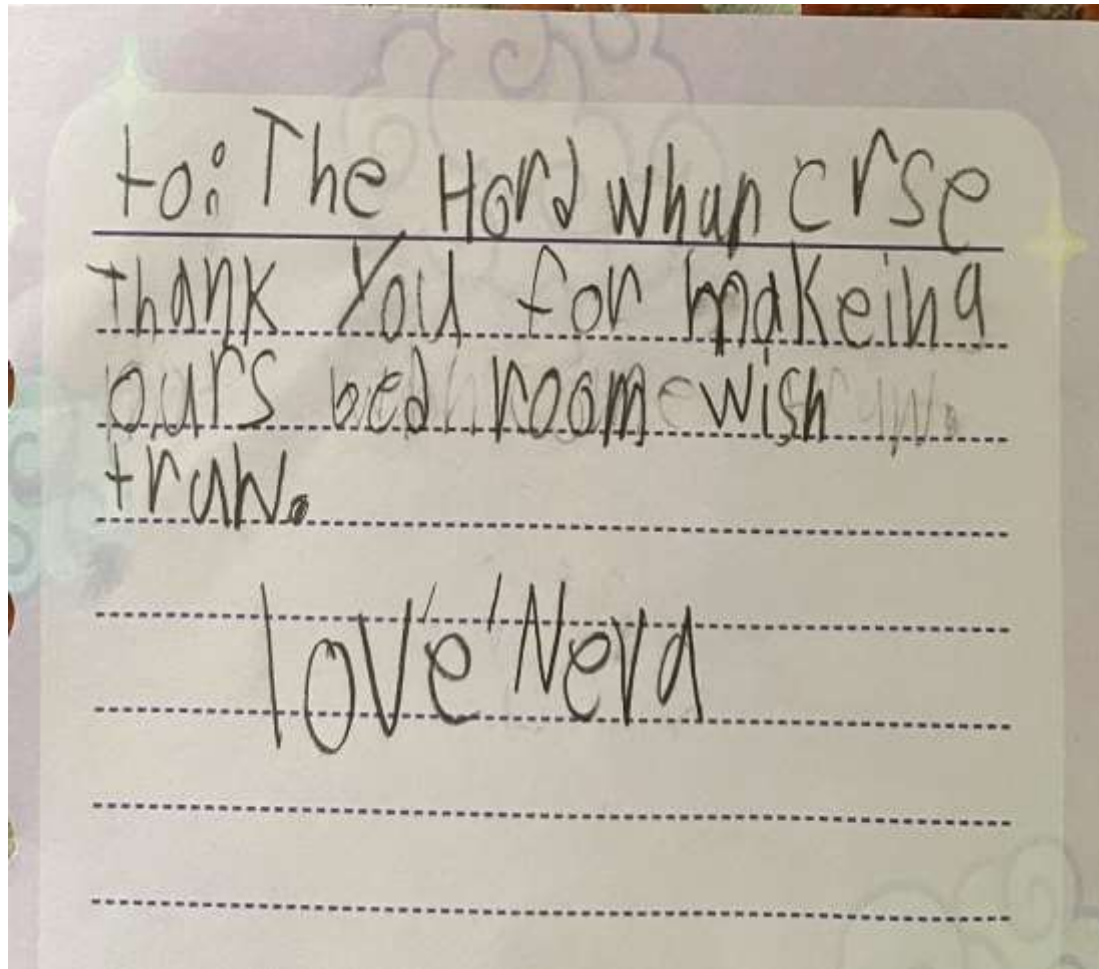 to: The Hord whun crse
thank You for makeing
ours bed room wish
traw.
love Neva